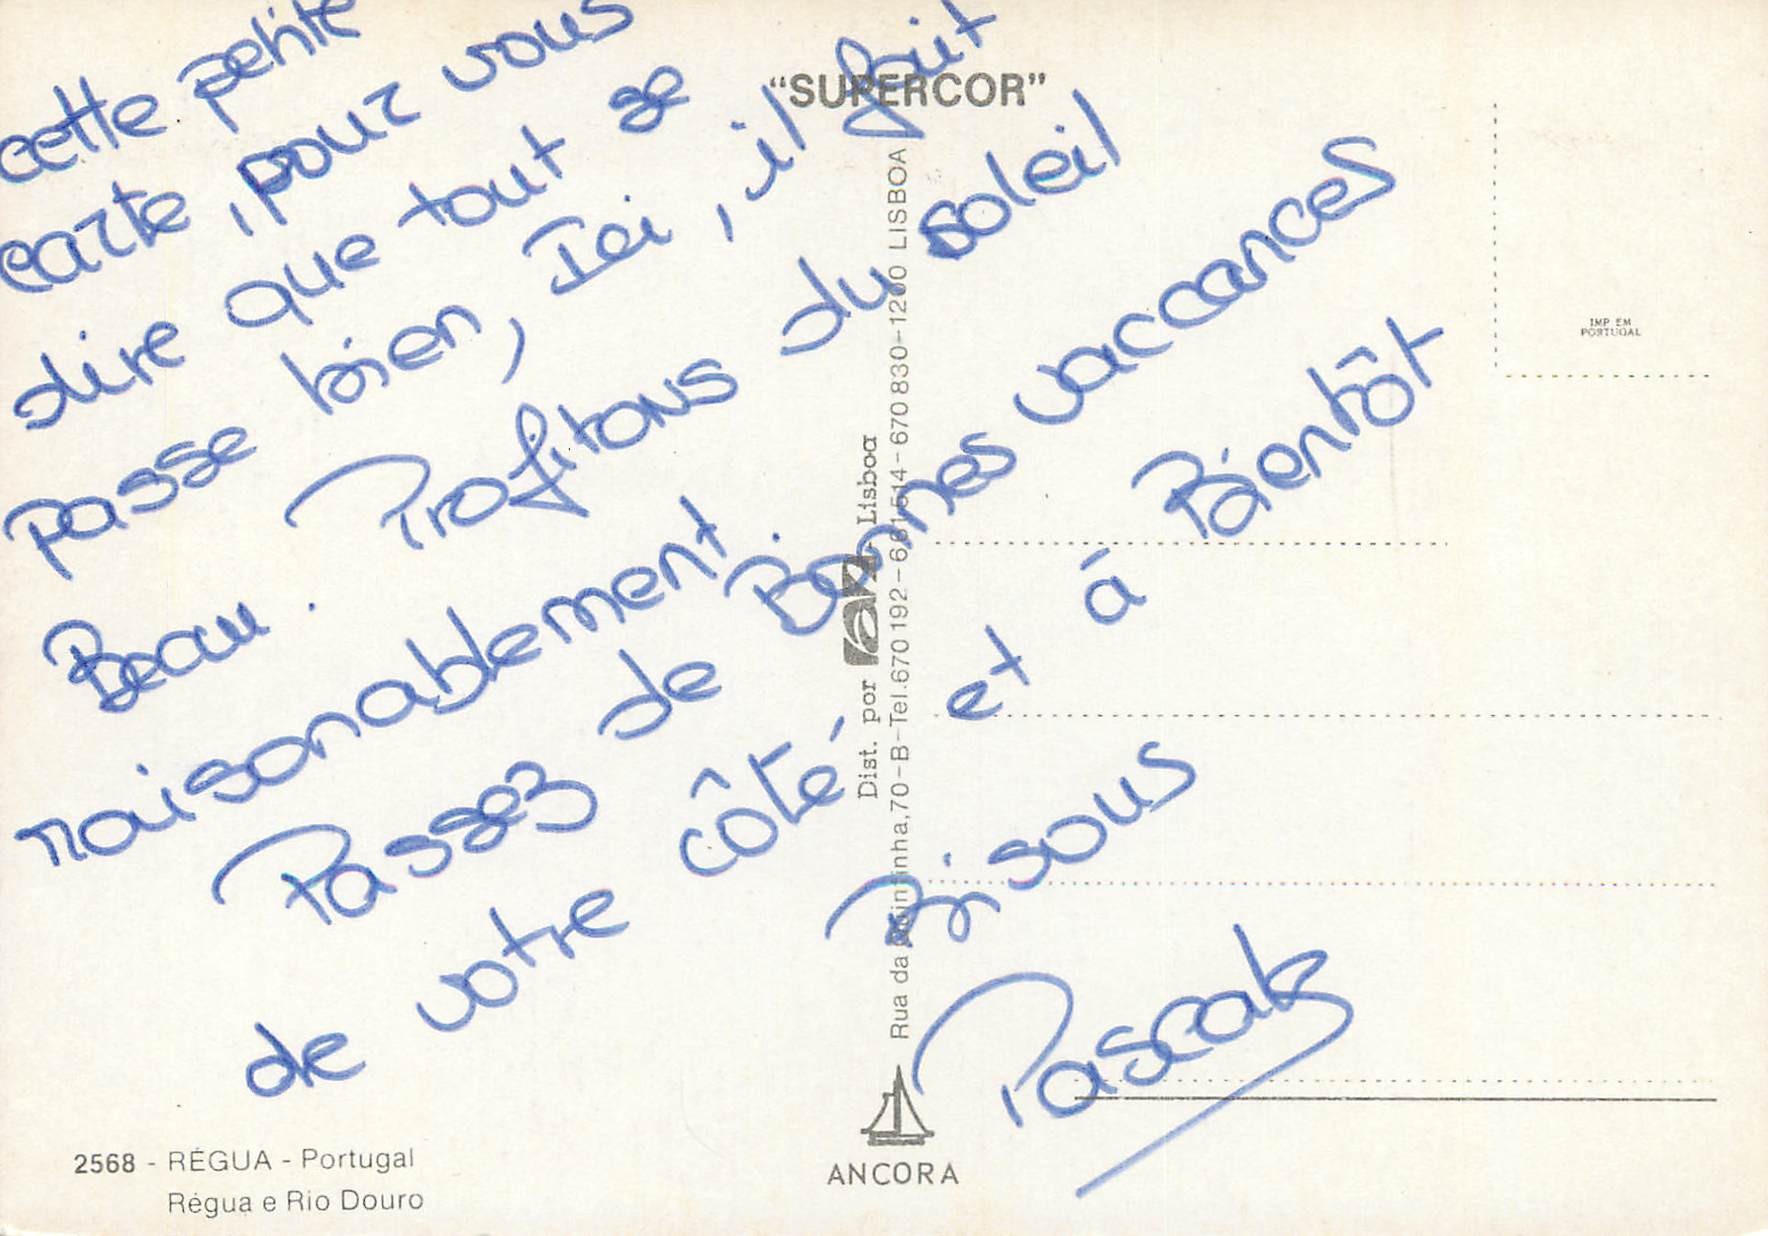 cette petite
carte, pour vous
dire que tout se
passe bien, Ici, il fait
Beau. Profitons du soleil
raisonablement.
Passez de Bonnes vaccances
de votre côté et á Bientôt
Bisous
"SUPERCOR"
IMP EM
PORTUGAL
Dist. por - Lisboa
Rua da 70-B-Tel. 670 192-691514-670 830-1200 LISBOA
ANCORA
2568 - RÉGUA - Portugal
Régua e Rio Douro